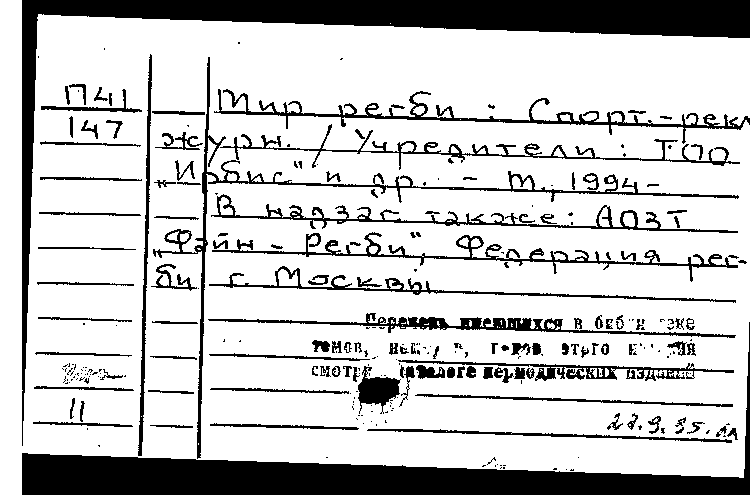 П41
147
Мир регби : Спорт.-рекл
журн. / Учредители : ТОО
„Ирбис" и др. - М., 1994-
В надзаг. также: АОЗТ
„Файн - Регби", Федерация рег-
би г. Москвы
Перечень имеющихся в
томов, этого
смотри каталоге периодических изданий
11